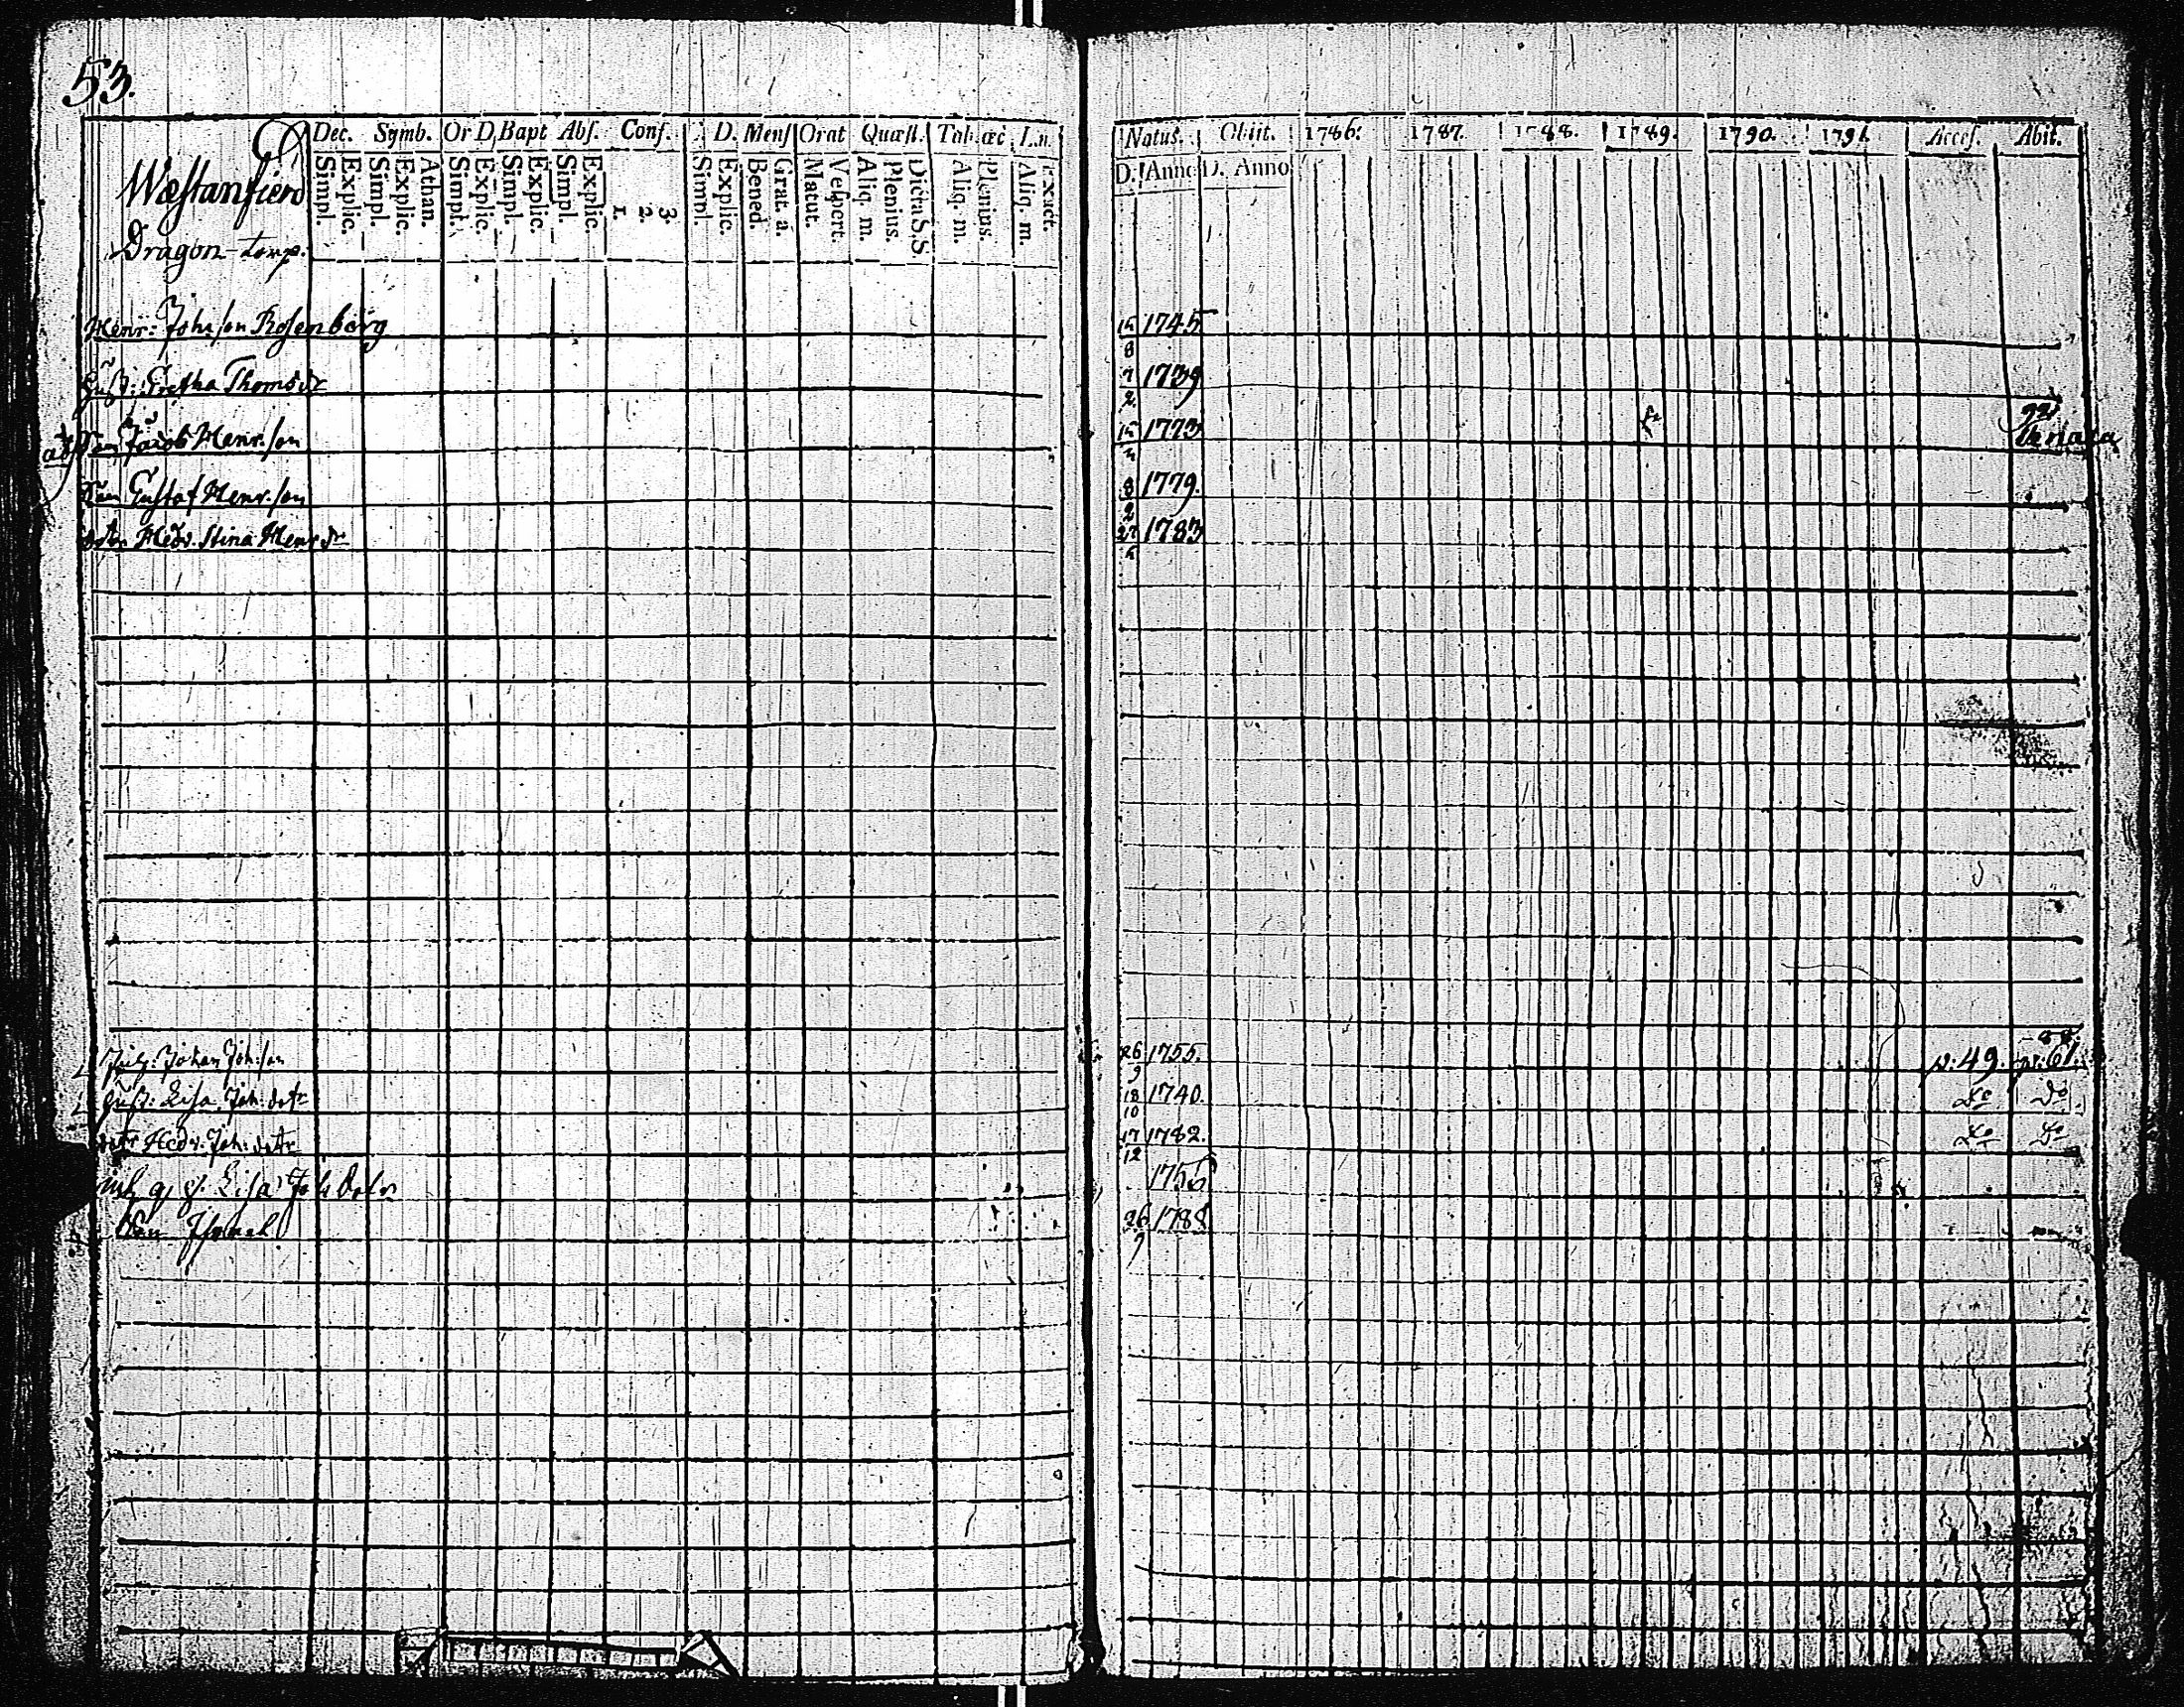 53.
Dec. Symb. Or D. Bapt Abſ. Conf. D. Menſ Orat Quæſt. Tab. œc L.n.
Simpl. Explic. Simpl. Explic. Athan. Simpl. Explic. Simpl. Explic. Simpl. Explic. 1. 2. 3. Simpl. Explic. Bened. Grat. a. Matut. Veſpert. Aliq. m. Plenius. Dicta S.S. Aliq. m. Plenius. Aliq. m. Exact.
Wæſtanfierd
Dragon-torp.
Henr: Johſon Roſenberg
Huſt: Gretha Thomsdr
Son Jacob Henr.ſon
Son Guſtaf Henr.ſon
dotr Hedv. Stina Henrdr
Johan Johſon
Huſt: Liſa Joh: dotr
dotr Hedv. Joh: dotr
Liſa Joh Dotr
Natus. Obiit. 1786. 1787. 1788. 1789. 1790. 1791. Acceſ. Abit.
D. Anno D. Anno
15/8 1745
7/2 1739
1773 91
8/2 1779.
27 1783
26/9 1755. p: 49. p: 61.
18/10 1740. Do Do
17/12 1782. Do Do
26/9 1788